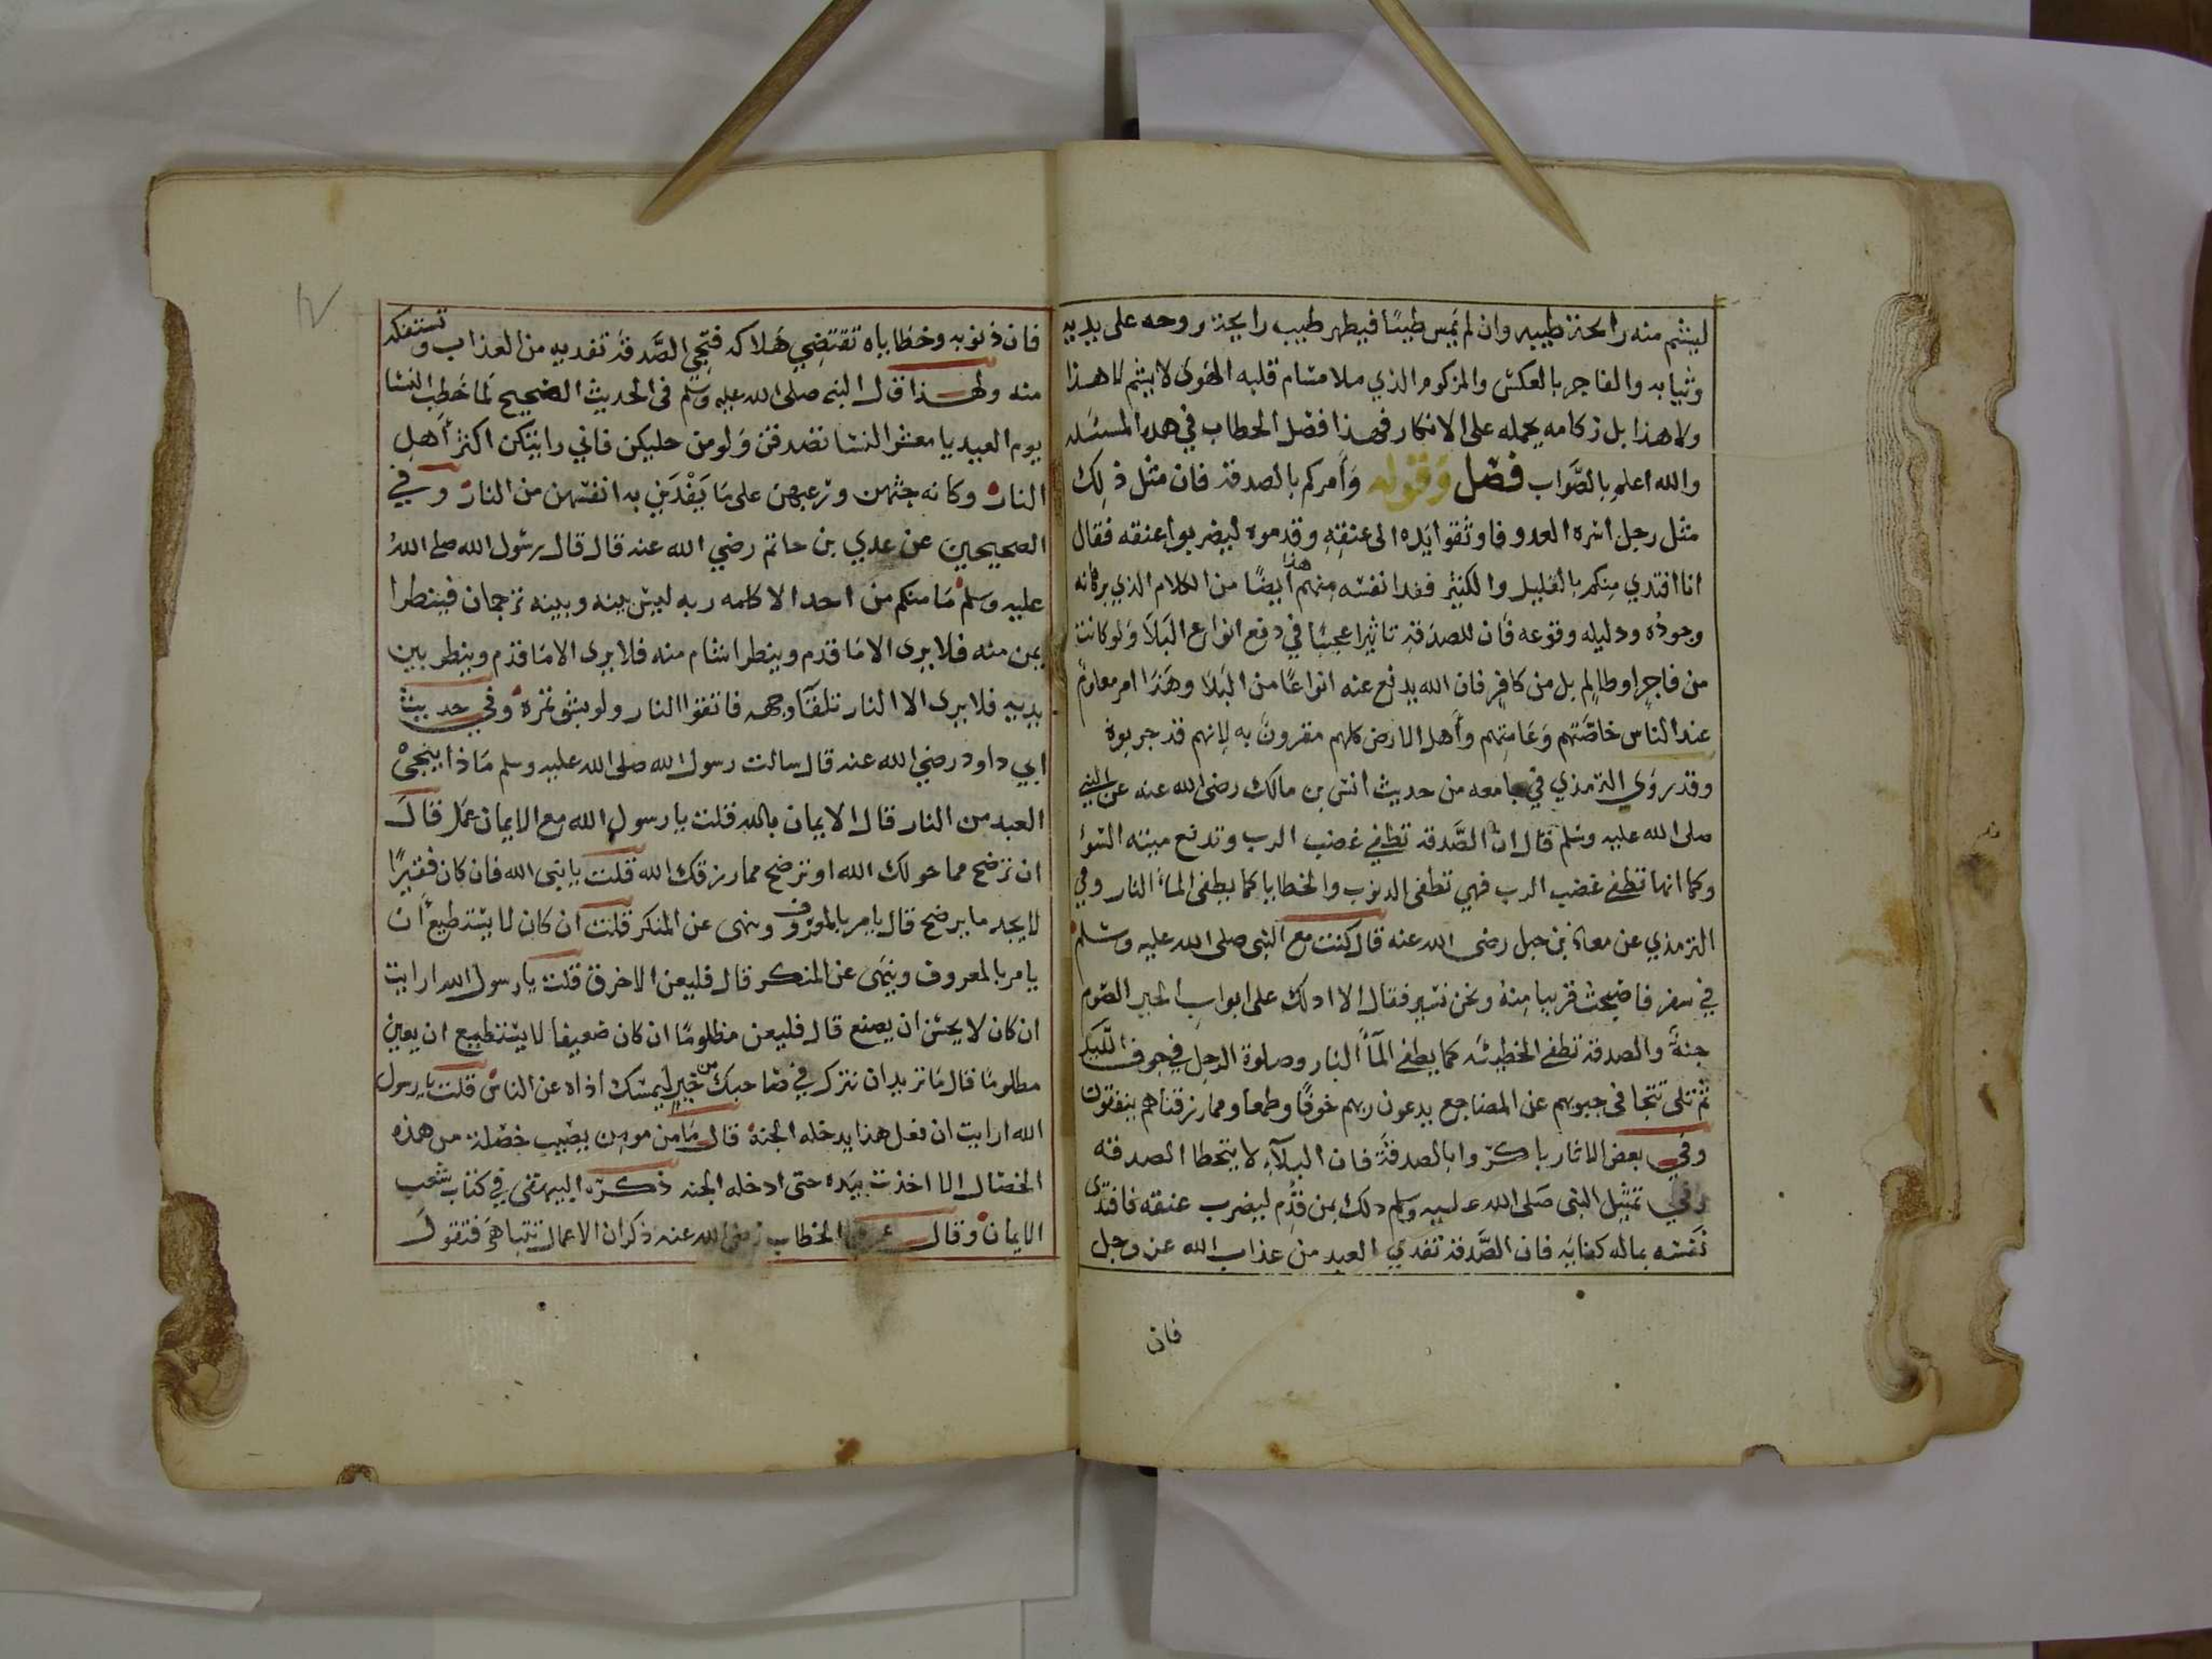 ليشم منه رايحة طيبه وان لم يمس طيبًا فيظهر طيب رايحة روحه على بدنه
وثيابه والفاجر بالعكس والمزكوم الذي ملا مشام قلبه الهوى لا يشم لا هذا
ولا هذا بل زكامه يحمله على الانكار فهذا فصل الخطاب في هذه المسئله
والله اعلم بالصَّواب فصل وَقوله وَأمركم بالصدقة فان مثل ذلك
مثل رجل اسره العدو فاوثقوا يَده الى عنقهِ وقدموه ليضربوا عنقه فقال
انا افتدي منكم بالقليل والكثير ففدا نفسَه منهم هذا أيضًا من الكلام الذي برهانه
وجودُه ودليله وقوعه فان للصدقة تاثيرا عجيبا في دفع انواع البَلاَ وَلو كانت
من فاجرٍ او ظالمٍ بل من كافرٍ فان الله يدفع عنه انواعًا من البَلا وهَذا امر معلومٌ
عند الناس خاصَّتهم وَعَامتهم وأهل الارض كلهم مقرونَ به لانهم قد جربوه
وقد روَى الترمذي في جامعه من حديث انس بن مالك رضى الله عنه عن النبي
صلى الله عليه وسَلم قال ان الصَّدقة تطفي غضب الرب وتدفع ميتة السّوؤ
وكما انها تطفي غضب الرب فهي تطفى الدنوب والخطايا كما يطفى الماءُ النار وفي
الترمذي عن معاذ بن جبل رضى الله عنه قال كنت مع النبى صلى الله عليه وسَلم
في سفر فاصبحت قريبا منهُ ونحن نسَير فقال الا ادلك على ابوابِ الخير الصّوم
جنةً والصدقة تطفي الخطيئَه كما يطفي المآءُ النار وصلوة الرجلِ في جوف اللّيل
ثم تلى تتجافى جنوبهم عن المضاجع يدعون ربهم خوفًا وطمعا ومما رزقناهم ينفقون
وفي بعض الاثار باكرّوا بالصدقةَ فان البلآءِ لا يتخطا الصدقه
وفي تمثيل النبى صَلى الله عليه وسلم دلك بمن قدِّم ليضرب عنقه فافتدى
نَفسَه بماله كفايَه فان الصَّدقة تفدي العبد من عذاب الله عز وجل
فان
فان ذنوبه وخطاياه تقتضِي هَلاكه فتجِي الصَّدقة تفديه من العذاب وتستفكه
منه ولهذا قال النبي صلى الله عليه وسَلم فى الحديث الصحيح لمَا خَطب النسَا
يوم العيد يا معشر النسَا تصدقن وَلو من حليكن فاني رايتكن اكثر أهلِ
النار وكانه حثهن ورغبهن على مَا يَفْدَين به انفسَهن من النار وفي
الصحيحين عن عدي بن حاتم رضي الله عنه قال قال رسول الله صلى اللهُ
عليه وسلم مَا منكم من احد الا كلمه ربه ليس بينه وبينه ترجمان فينظر ا
يمن منه فلا يرى الا مَا قدم وينظر اشام منه فلا يرى الا مَا قدم وينظر بين
يديهِ فلا يرى الا النار تلقآ وجهه فاتقوا النار ولو بشق تمره وفي حديث
ابي داود رضي الله عنه قال سالت رسول الله صلى الله عليه وسلم مَاذا ينجىْ
العبد من النار قال الايمان بالله قلت يا رسول الله مع الايمان عمَل قالَ
ان ترضح مما خولك الله او ترضح مما رزقك الله قلت يا نبى الله فان كان فقيرًا
لا يجد ما يرضح قال يامر بالمعروف وينهى عن المنكر قلت ان كان لا يسْتطيع أن
يامر بالمعروف وينهَى عن المنكر قال فليعن الاخرق قلت يا رسول الله ارايت
ان كان لا يحسْن ان يصنع قال فليعن مظلومًا ان كان ضعيفا لا يسْتطيع ان يعين
مظلومًا قال مَا تريد ان تترك في صَاحبك من خيرٍ ليمسَك اذاه عن الناس قلت يا رسول
الله ارايت ان فعل هذا يدخله الجنة قال مَا من مومن يصيب خصْلة من هذه
الخصَال الا اخذت بيَده حتى ادخله الجنه ذكرّه البيهقى في كتاب شعب
الايمان وقال عمر بن الخطاب رضى الله عنه ذكر ان الاعمال تتباهَى فتقولَ